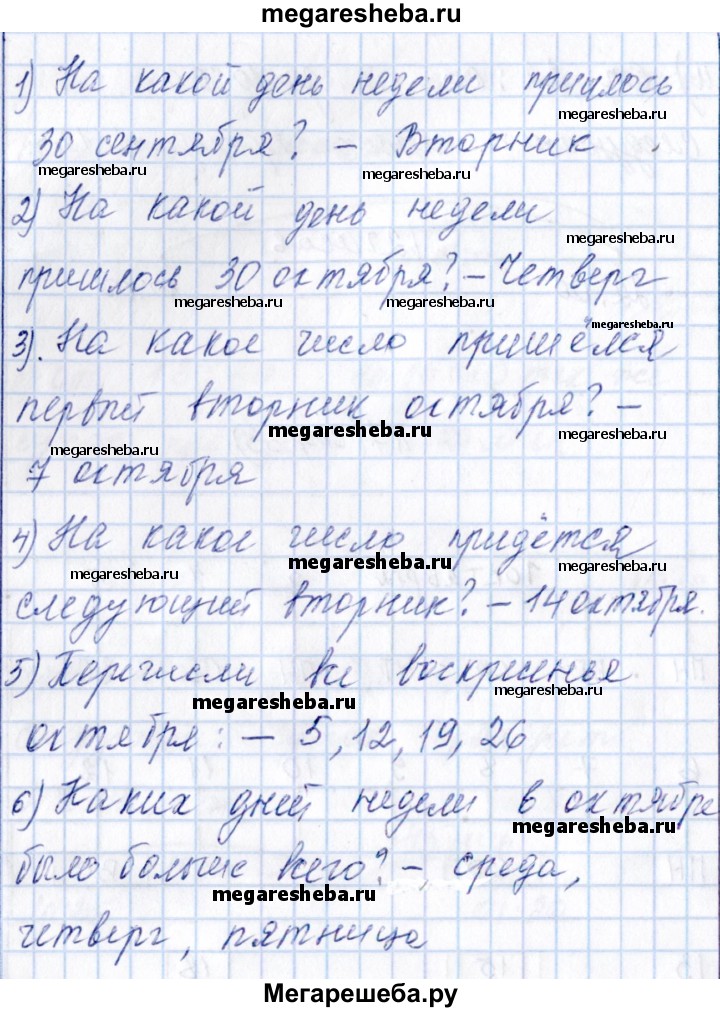 megaresheba.ru
1) На какой день недели пришлось
megaresheba.ru
30 сентября? – Вторник.
megaresheba.ru megaresheba.ru
2) На какой день недели
megaresheba.ru
пришлось 30 октября? – Четверг
megaresheba.ru megaresheba.ru
megaresheba.ru
3). На какое число пришёлся
первый вторник октября? –
megaresheba.ru megaresheba.ru
megaresheba.ru
7 октября
4) На какое число придётся
megaresheba.ru megaresheba.ru
megaresheba.ru
следующий вторник? – 14 октября.
5) Перечисли все воскресенья
megaresheba.ru megaresheba.ru
октября: – 5, 12, 19, 26
6) Каких дней недели в октябре
megaresheba.ru
было больше всего? – среда,
megaresheba.ru
четверг, пятница
megaresheba.ru
Мегарешеба.ру